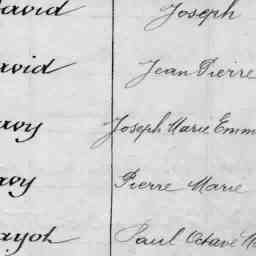 avid Joseph
avid Jean Pierre
avoy Joseph Marie Emm
avoy Pierre Marie
ayoh Paul Octave